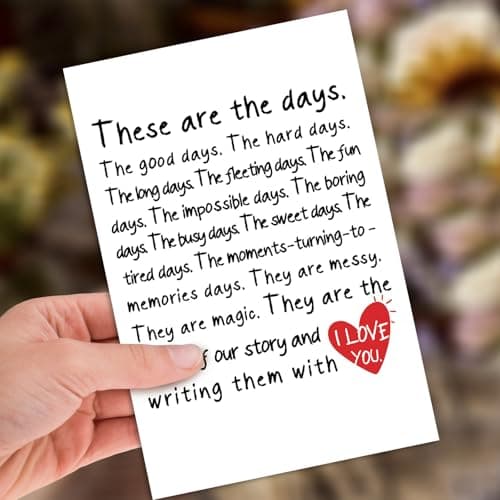 These are the days.
The good days. The hard days.
The long days. The fleeting days. The fun
days. The impossible days. The boring
days. The busy days. The sweet days. The
tired days. The moments-turning-to-
memories days. They are messy.
They are magic. They are the
of our story and I LOVE
writing them with YOU.